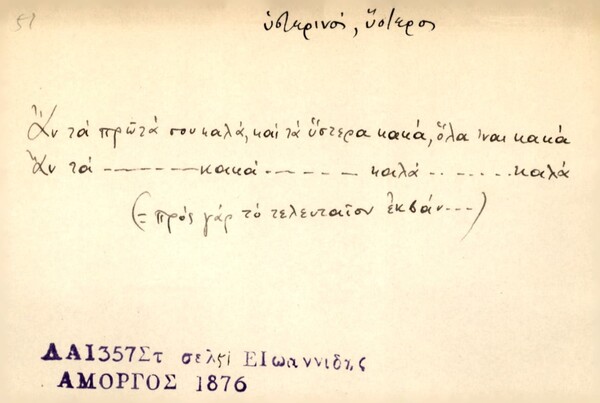 51
ὑστερινός, ὕστερος
Ἂν τά πρῶτά σου καλά, καί τά ὕστερα κακά, ὅλα 'ναι κακά
Ἂν τά ------- κακά ------ καλά ------ καλά
(= πρός γάρ τό τελευταῖον ἐκβάν---)
ΔΑΙ357Στ σελ51 ΕΙωαννιδης
ΑΜΟΡΓΟΣ 1876